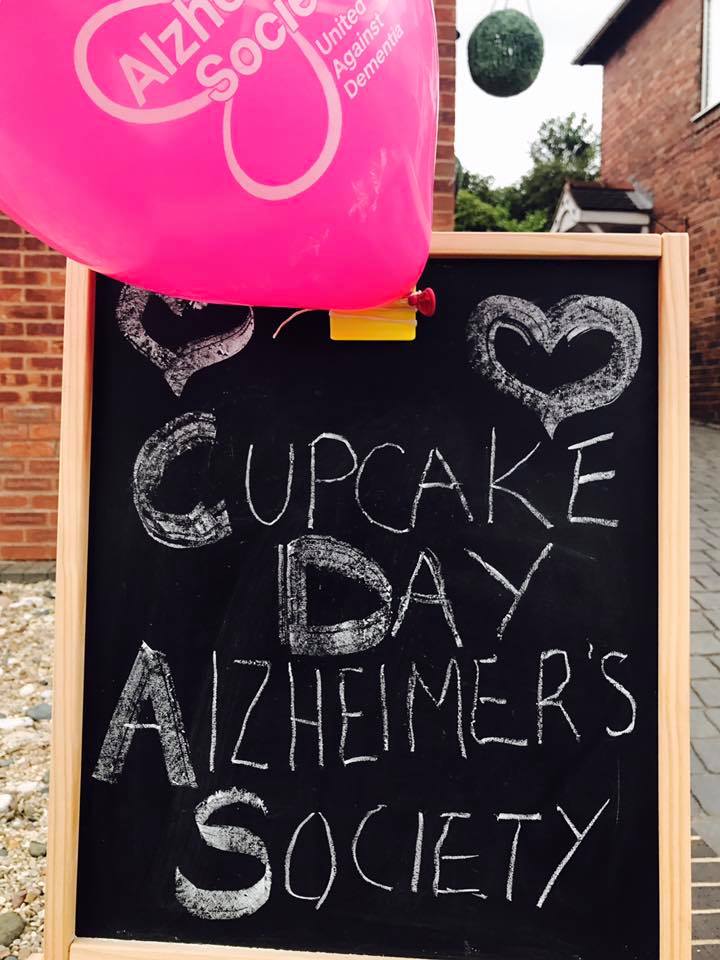 Alzhe
Socie
United
Against
Dementia
CUPCAKE
DAY
AlZHEIMER'S
SOCIETY